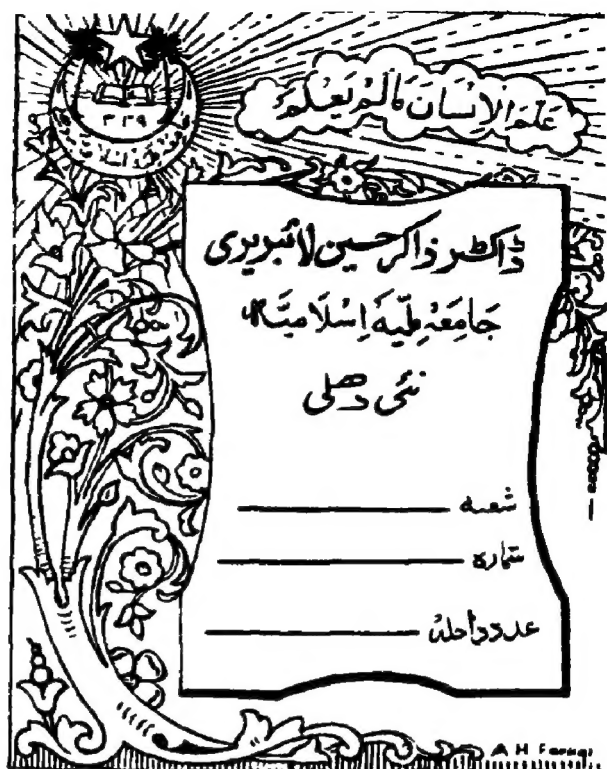 عَلَّمَ الْاِنْسَانَ مَا لَمْ یَعْلَمْ
۱۳۳۹
ڈاکٹر ذاکر حسین لائبریری
جَامِعَہ مِلّیَہ اِسْلَامیَّہ
نئی دهلی
شعبہ
شمارہ
عدد داخلہ
A H Farooqi